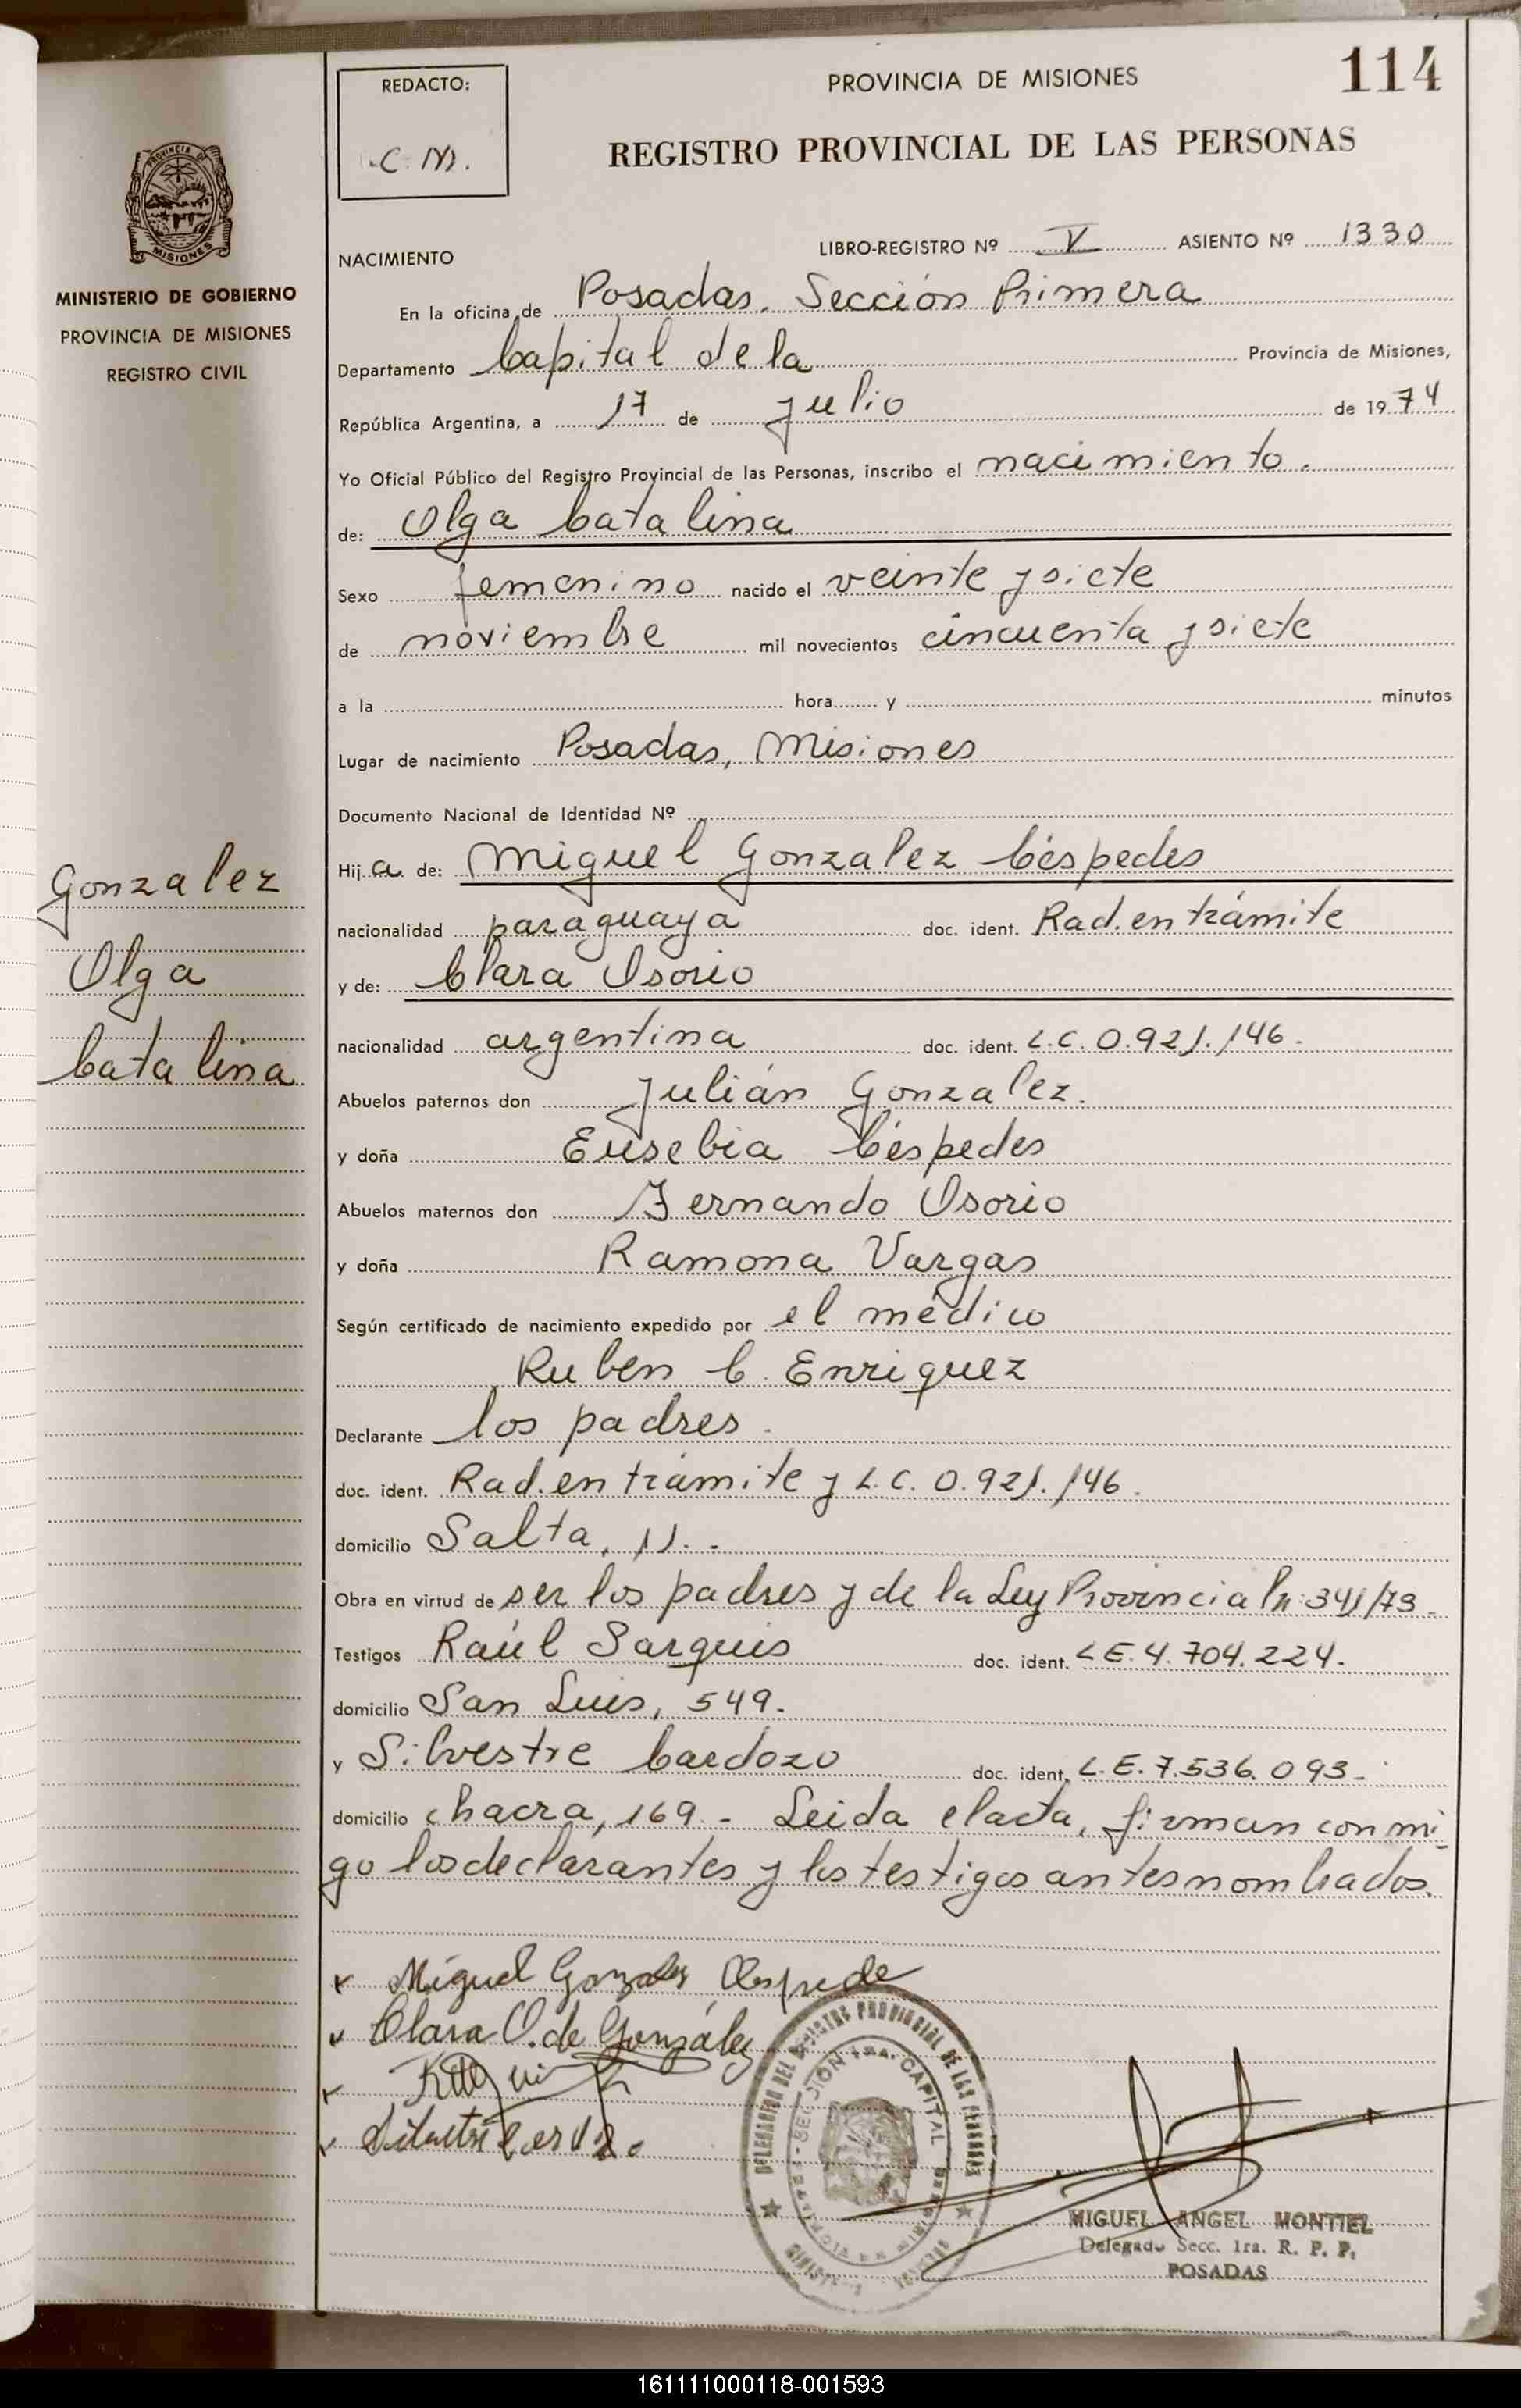 114
REDACTO:
C. M.
PROVINCIA DE MISIONES
REGISTRO PROVINCIAL DE LAS PERSONAS
PROVINCIA DE
MISIONES
MINISTERIO DE GOBIERNO
PROVINCIA DE MISIONES
REGISTRO CIVIL
NACIMIENTO
LIBRO-REGISTRO Nº V ASIENTO Nº 1330
En la oficina de Posadas, Sección Primera
Departamento Capital de la Provincia de Misiones,
República Argentina, a 17 de julio de 1974
Yo Oficial Público del Registro Provincial de las Personas, inscribo el nacimiento.
de: Olga Catalina
Sexo femenino nacido el veinte y siete
de noviembre mil novecientos cincuenta y siete
a la hora y minutos
Lugar de nacimiento Posadas, Misiones
Documento Nacional de Identidad Nº
Hija de: Miguel Gonzalez Céspedes
nacionalidad paraguaya doc. ident. Rad. en trámite
y de: Clara Osorio
nacionalidad argentina doc. ident. L.C. 0.921.146.
Abuelos paternos don Julián Gonzalez.
y doña Eusebia Céspedes
Abuelos maternos don Fernando Osorio
y doña Ramona Vargas
Según certificado de nacimiento expedido por el médico
Ruben C. Enriquez
Declarante los padres.
doc. ident. Rad. en trámite y L.C. 0.921.146.
domicilio Salta, 11.-
Obra en virtud de ser los padres y de la Ley Provincial n: 341/73.
Testigos Raúl Sarquis doc. ident. L E. 4.704.224.
domicilio San Luis, 549.
y Silvestre Cardozo doc. ident. L.E. 7.536.093.-
domicilio chacra, 169.- Leida el acta, firman conmi-
go los declarantes y los testigos antes nombrados.
Gonzalez
Olga
Catalina
Miguel Gonzales Cespede
Clara O. de González
DELEGACION DEL REGISTRO PROVINCIAL DE LAS PERSONAS
SECCION 1RA. CAPITAL
MIGUEL ANGEL MONTIEL
Delegado Secc. 1ra. R. P. P.
POSADAS
161111000118-001593